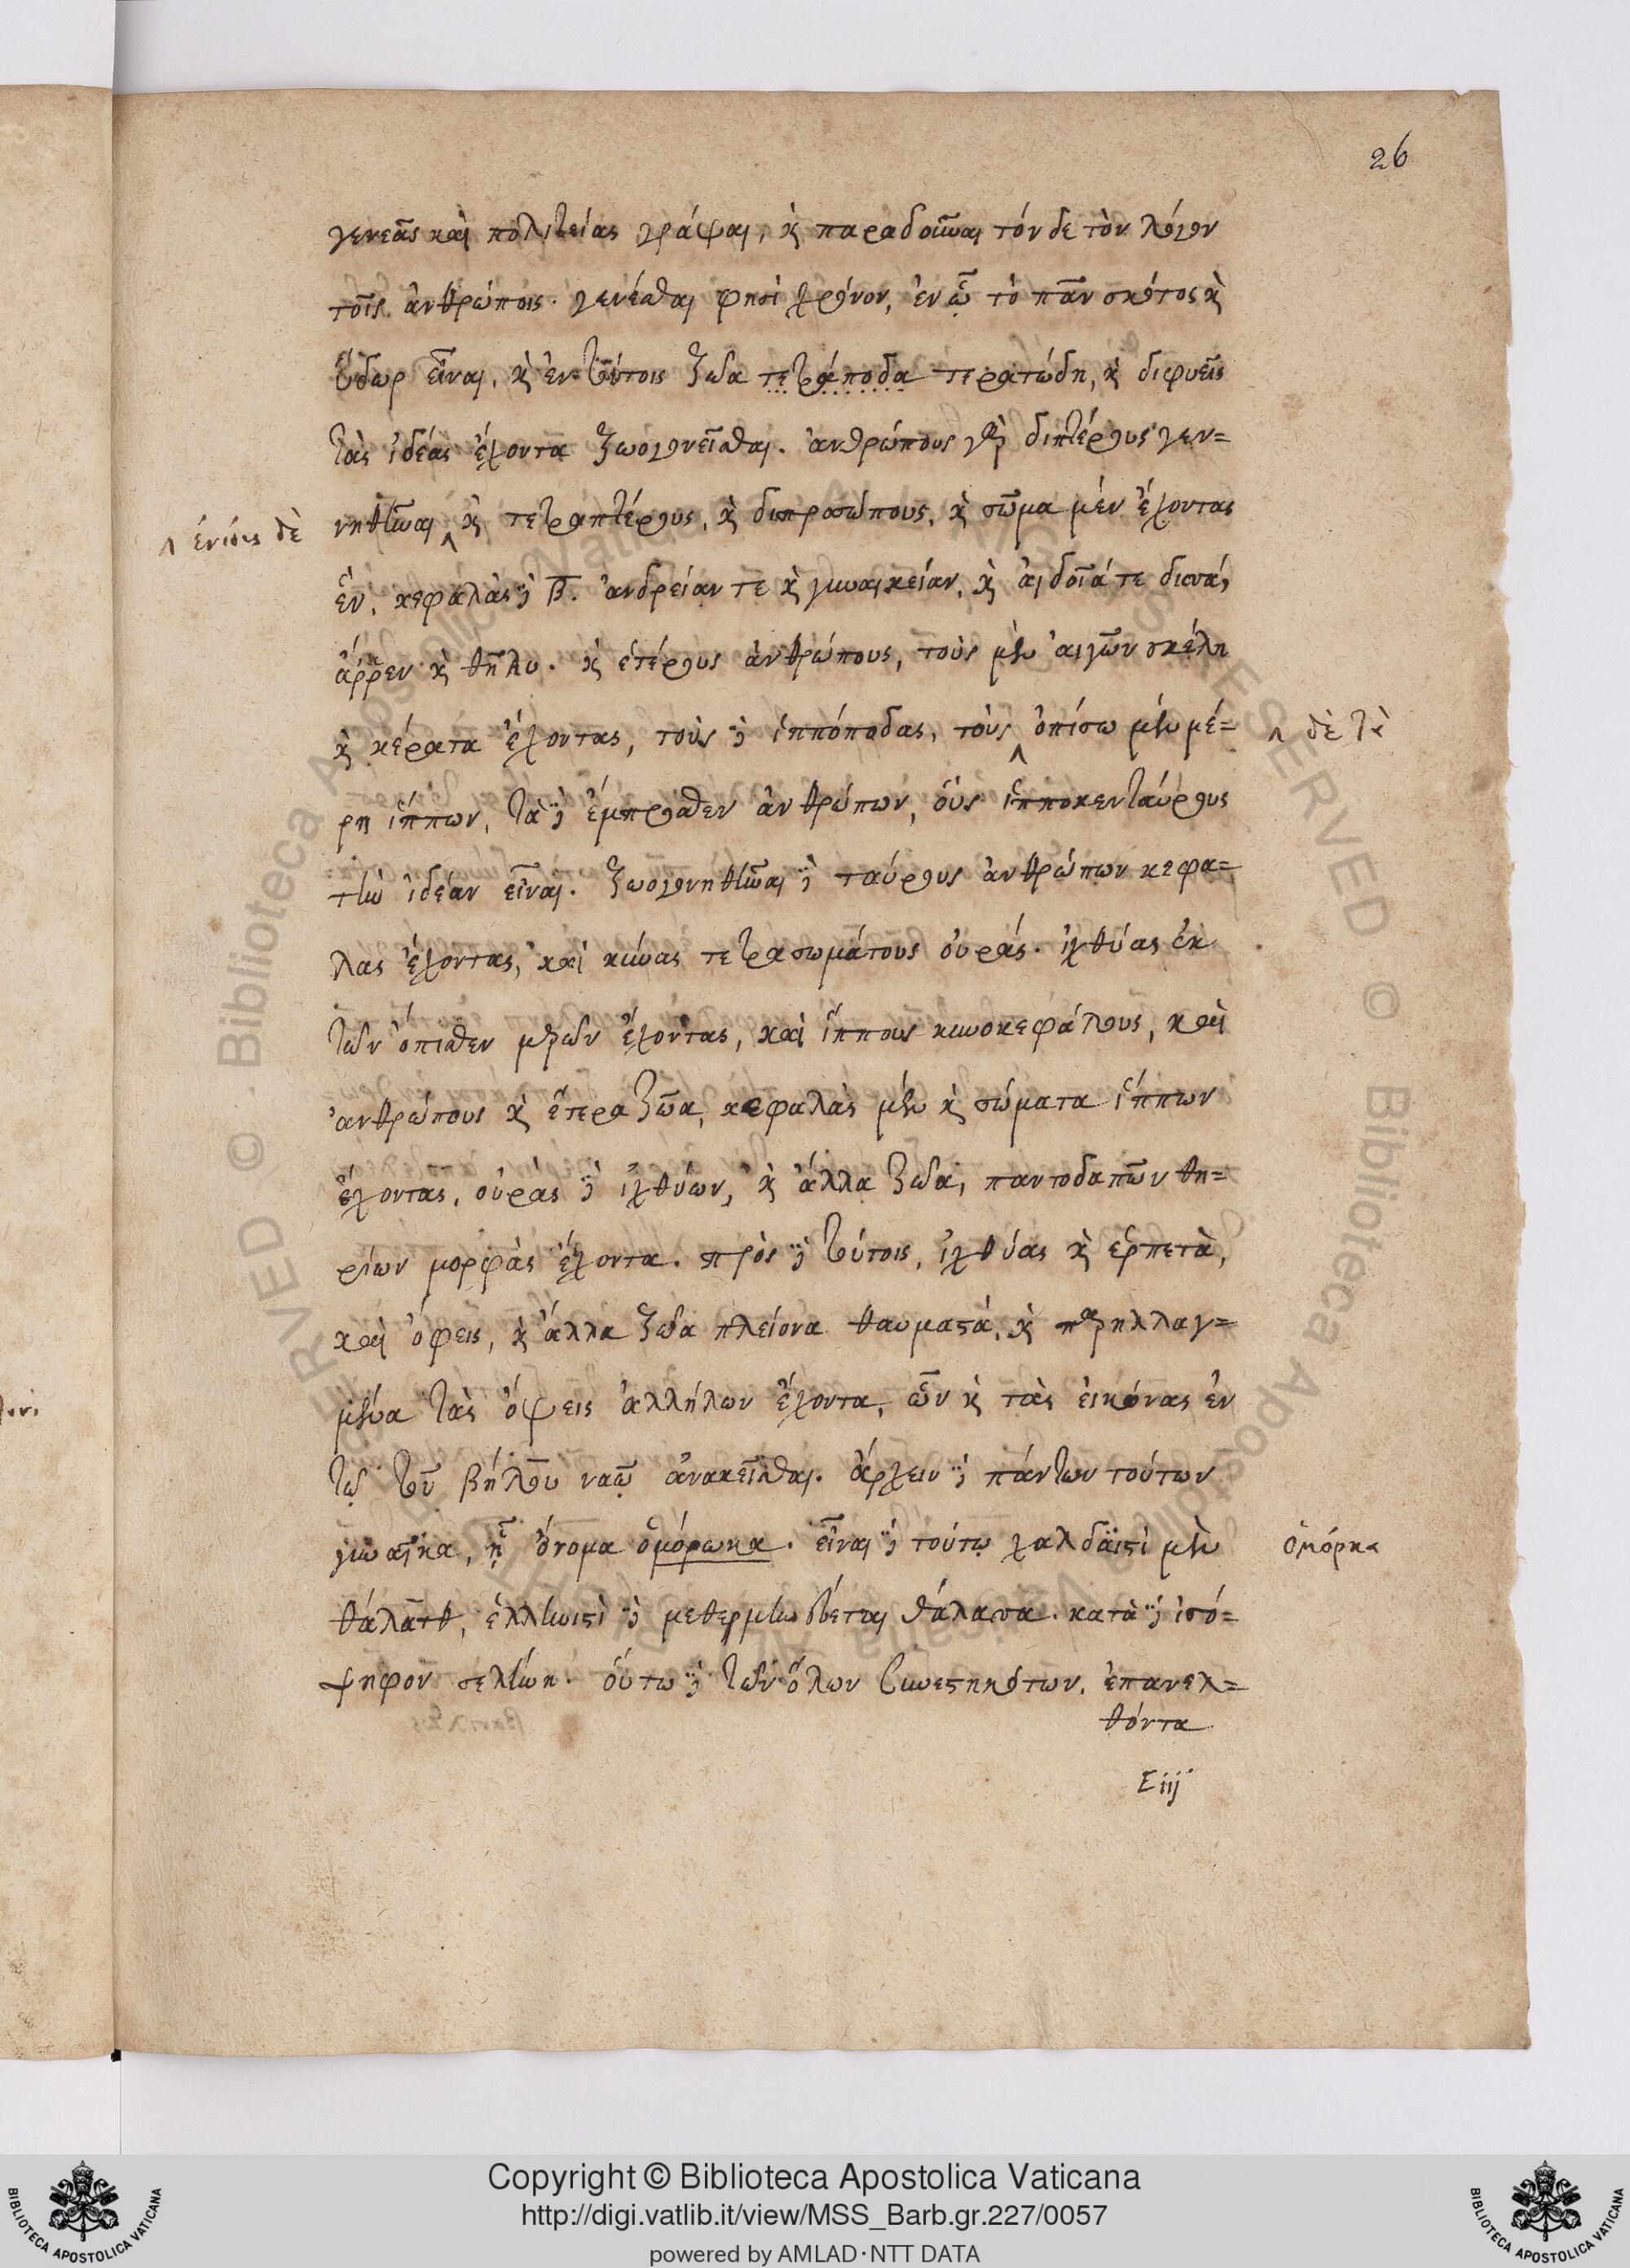 26
γενεᾶς καὶ πολιτείας γράψαι, κ̀ παραδοῦναι τόν δε τὸν λόγον
τοῖς ἀνθρώποις. γενέσθαι φησὶ χρόνον, ἐν ᾧ τὸ πᾶν σκότος κ̀
ὕδωρ εἶναι, κ̀ ἐν τούτοις ζῶα τετράποδα τερατώδη, κ̀ διφυεῖς
τὰς ἰδέας ἔχοντα ζωογονεῖσθαι. ἀνθρώπους γὰρ διπτέρους γεν=
νηθῆναι ^ κ̀ τετραπτέρους, κ̀ διπροσώπους, κ̀ σῶμα μὲν ἔχοντας
^ ἐνίους δὲ
ἓν, κεφαλὰς δὲ β. ἀνδρείαν τε κ̀ γυναικείαν, κ̀ αἰδοῖά τε δισσά,
ἄρρεν κ̀ θῆλυ. κ̀ ἑτέρους ἀνθρώπους, τοὺς μὲν αἰγῶν σκέλη
κ̀ κέρατα ἔχοντας, τοὺς δὲ ἱππόποδας, τοὺς ^ ὀπίσω μὲν μέ=
^ δὲ τὰ
ρη ἵππων, τὰ δὲ ἔμπροσθεν ἀνθρώπων, οὓς ἱπποκενταύρους
τὴν ἰδέαν εἶναι. ζωογονηθῆναι δὲ ταύρους ἀνθρώπων κεφα=
λας ἔχοντας, καὶ κύνας τετρασωμάτους οὐράς. ἰχθύας ἐκ
τῶν ὄπισθεν μερῶν ἔχοντας, καὶ ἵππους κυνοκεφάλους, καὶ
ἀνθρώπους κ̀ ἕτερα ζῶα, κεφαλὰς μὲν κ̀ σώματα ἵππων
ἔχοντας, οὐρὰς δὲ ἰχθύων, κ̀ ἄλλα ζῶα, παντοδαπῶν θη=
ρίων μορφὰς ἔχοντα. πρὸς δὲ τούτοις, ἰχθύας κ̀ ἑρπετὰ,
καὶ ὄφεις, κ̀ ἄλλα ζῶα πλείονα θαυμαστά, κ̀ παρηλλαγ=
μένα τὰς ὄψεις ἀλλήλων ἔχοντα, ὧν κ̀ τὰς εἰκόνας ἐν
τῷ τοῦ βήλου ναῷ ἀνακεῖσθαι. ἄρχειν δὲ πάντων τούτων
γυναῖκα, ᾗ ὄνομα ὁμόρωκα. εἶναι δὲ τούτῳ χαλδαϊστὶ μὲν
ὁμόρκα
θάλατθ, ἑλληνιστὶ δὲ μεθερμηνεύεται θάλασσα. κατὰ δὲ ἰσό=
ψηφον σελήνη. οὕτω δὲ τῶν ὅλων συνεστηκότων, ἐπανελ=
θόντα
Eiij
Copyright © Biblioteca Apostolica Vaticana
http://digi.vatlib.it/view/MSS_Barb.gr.227/0057
powered by AMLAD·NTT DATA